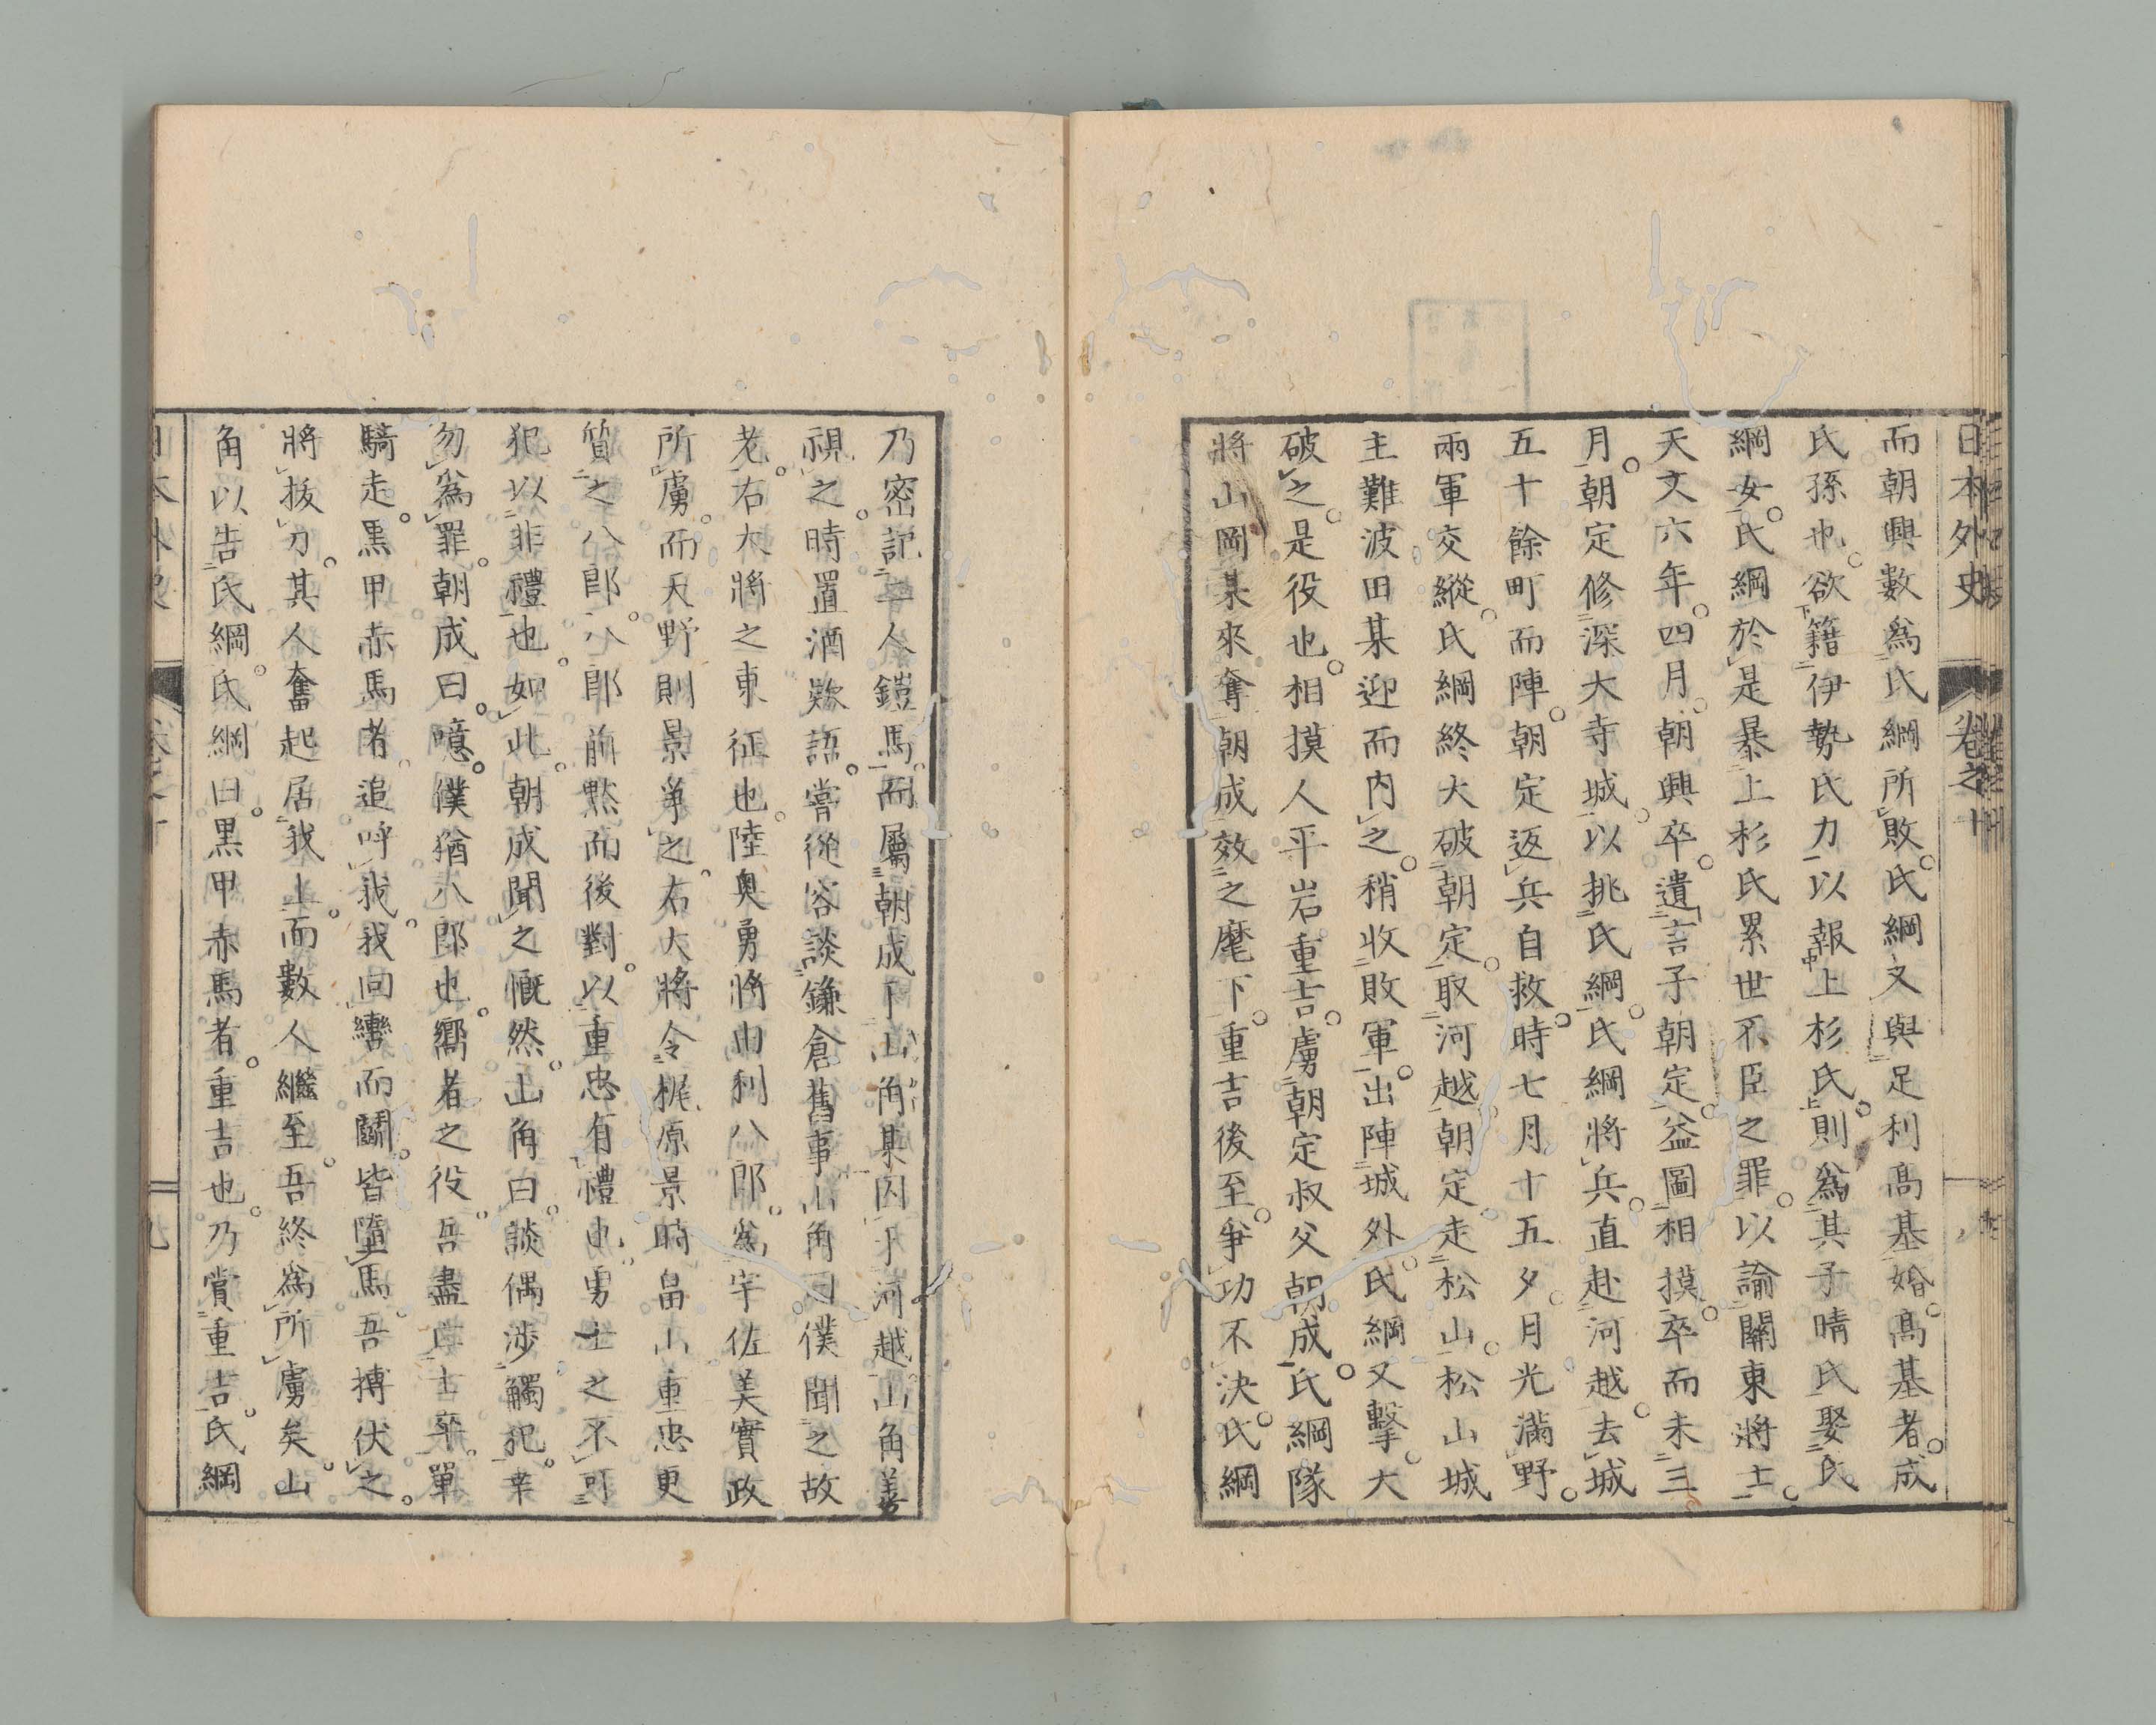 日本外史 卷之十
而朝興數爲氏綱所敗。氏綱又與足利高基婚。高基者。成
氏孫也。欲籍伊勢氏力以報上杉氏。則爲其子晴氏娶氏
綱女。氏綱於是暴上杉氏累世不臣之罪。以諭關東將士。
天文六年。四月。朝興卒。遺言子朝定。益圖相摸。卒而未三
月。朝定修深大寺城。以挑氏綱。氏綱將兵。直赴河越。去城
五十餘町而陣。朝定返兵自救。時七月十五夕。月光滿野。
兩軍交縱。氏綱終大破朝定。取河越。朝定走松山。松山城
主難波田某迎而内之。稍收敗軍。出陣城外。氏綱又擊。大
破之。是役也。相摸人平岩重吉。虜朝定叔父朝成。氏綱隊
將山岡某來奪朝成。效之麾下。重吉後至。爭功不決。氏綱
乃密記二人鎧馬。而屬朝成下山角某。囚于河越。山角善
視之。時置酒歡語。嘗從容談鎌倉舊事。山角曰。僕聞之故
老。右大將之東征也。陸奥勇將由利八郎。爲宇佐美實政
所虜。而天野則景爭之。右大將令梶原景時畠山重忠更
質之八郎。八郎前默而後對。以重忠有禮也。勇士之不可
犯以非禮也。如此。朝成聞之慨然。山角曰。談偶涉觸犯。幸
勿爲罪。朝成曰。噫。僕猶八郎也。嚮者之役。吾盡亡士卒。單
騎走。黒甲赤馬者。追呼我。我回轡而鬭。皆墮馬。吾搏伏之。
將拔刀。其人奮起。居我上。而數人繼至。吾終爲所虜矣。山
角以告氏綱。氏綱曰。黒甲赤馬者。重吉也。乃賞重吉。氏綱